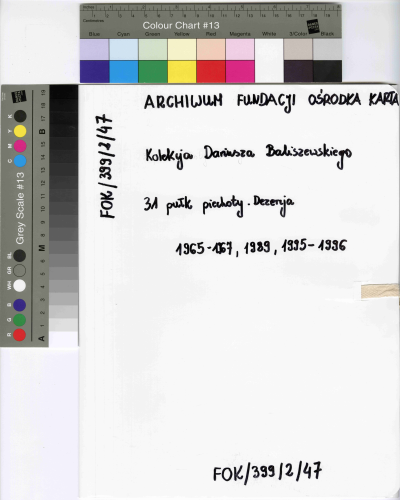 Colour Chart #13
Blue Cyan Green Yellow Red Magenta White 3/Color Black
Grey Scale #13
C M Y K
R G B WH GR BL
A 1 2 3 4 5 6 M 8 9 10 11 12 13 14 15 B 17 18 19
FOK/399/2/47
ARCHIWUM FUNDACJI OŚRODKA KARTA
Kolekcja Dariusza Baliszewskiego
31 pułk piechoty. Dezercja
1965-1967, 1989, 1995-1996
FOK/399/2/47